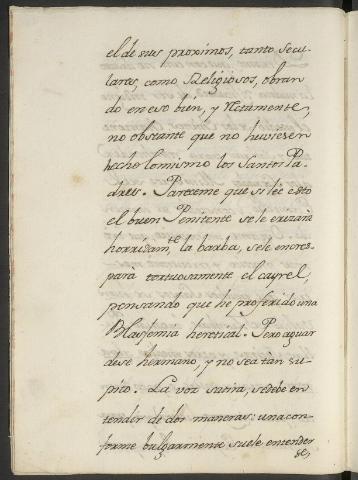 el de sus proximos, tanto Secu-
lares, como Religiosos, obran-
do en eso bien, y rectamente,
no obstante que no huviesen
hecho lo mismo los Santos Pa-
dres. Pareceme que si lée esto
el buen Penitente se le erizará
horrizam.te la barba, se le encres-
pará tortuosamente el cayrel,
pensando que he proferido una
Blasfemia heretical. Pero aguar-
dese hermano, y no sea tàn su-
pito. La voz satira, se debe en-
tender de dos maneras: una con-
forme bulgarmente suele entender
se,